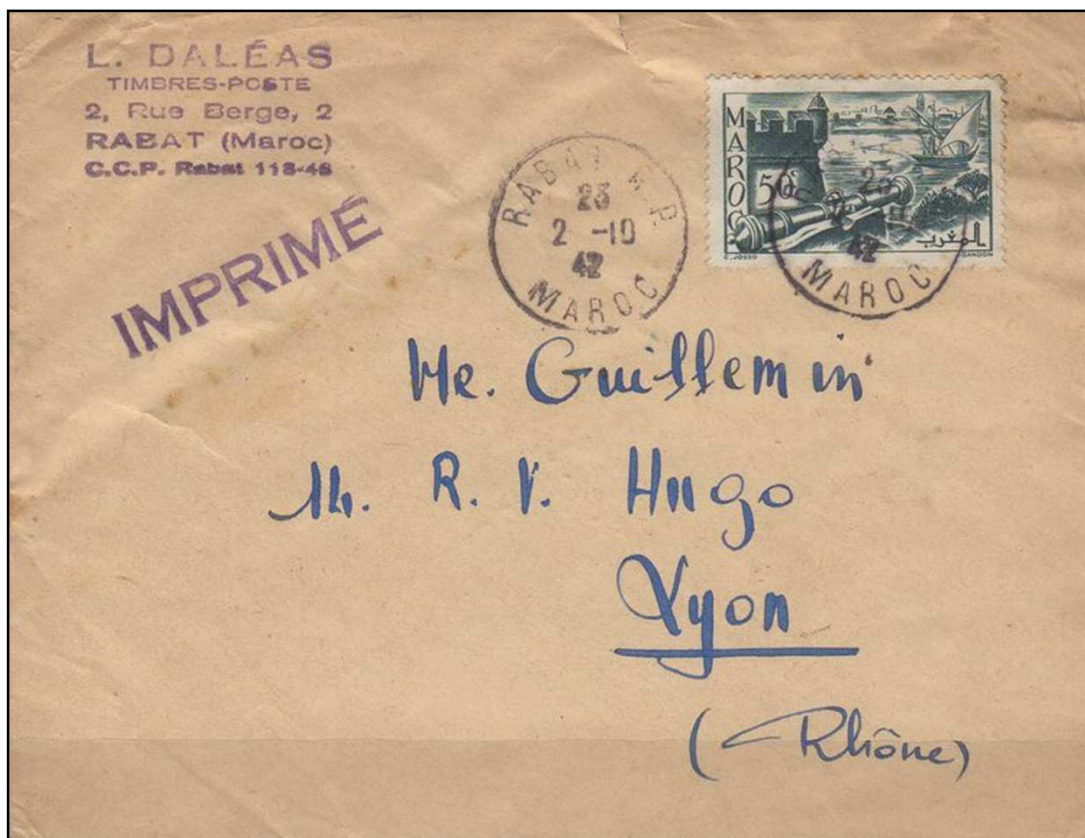 L. DALÉAS
TIMBRES-POSTE
2, Rue Berge, 2
RABAT (Maroc)
C.C.P. Rabat 118-48
IMPRIMÉ
RABAT R.P.
23
2 -10
42
MAROC
MAROC
50c
المغرب
C. JOSSO
GANDON
23
42
MAROC
Me. Guillemin
14. R. V. Hugo
Lyon
(Rhône)